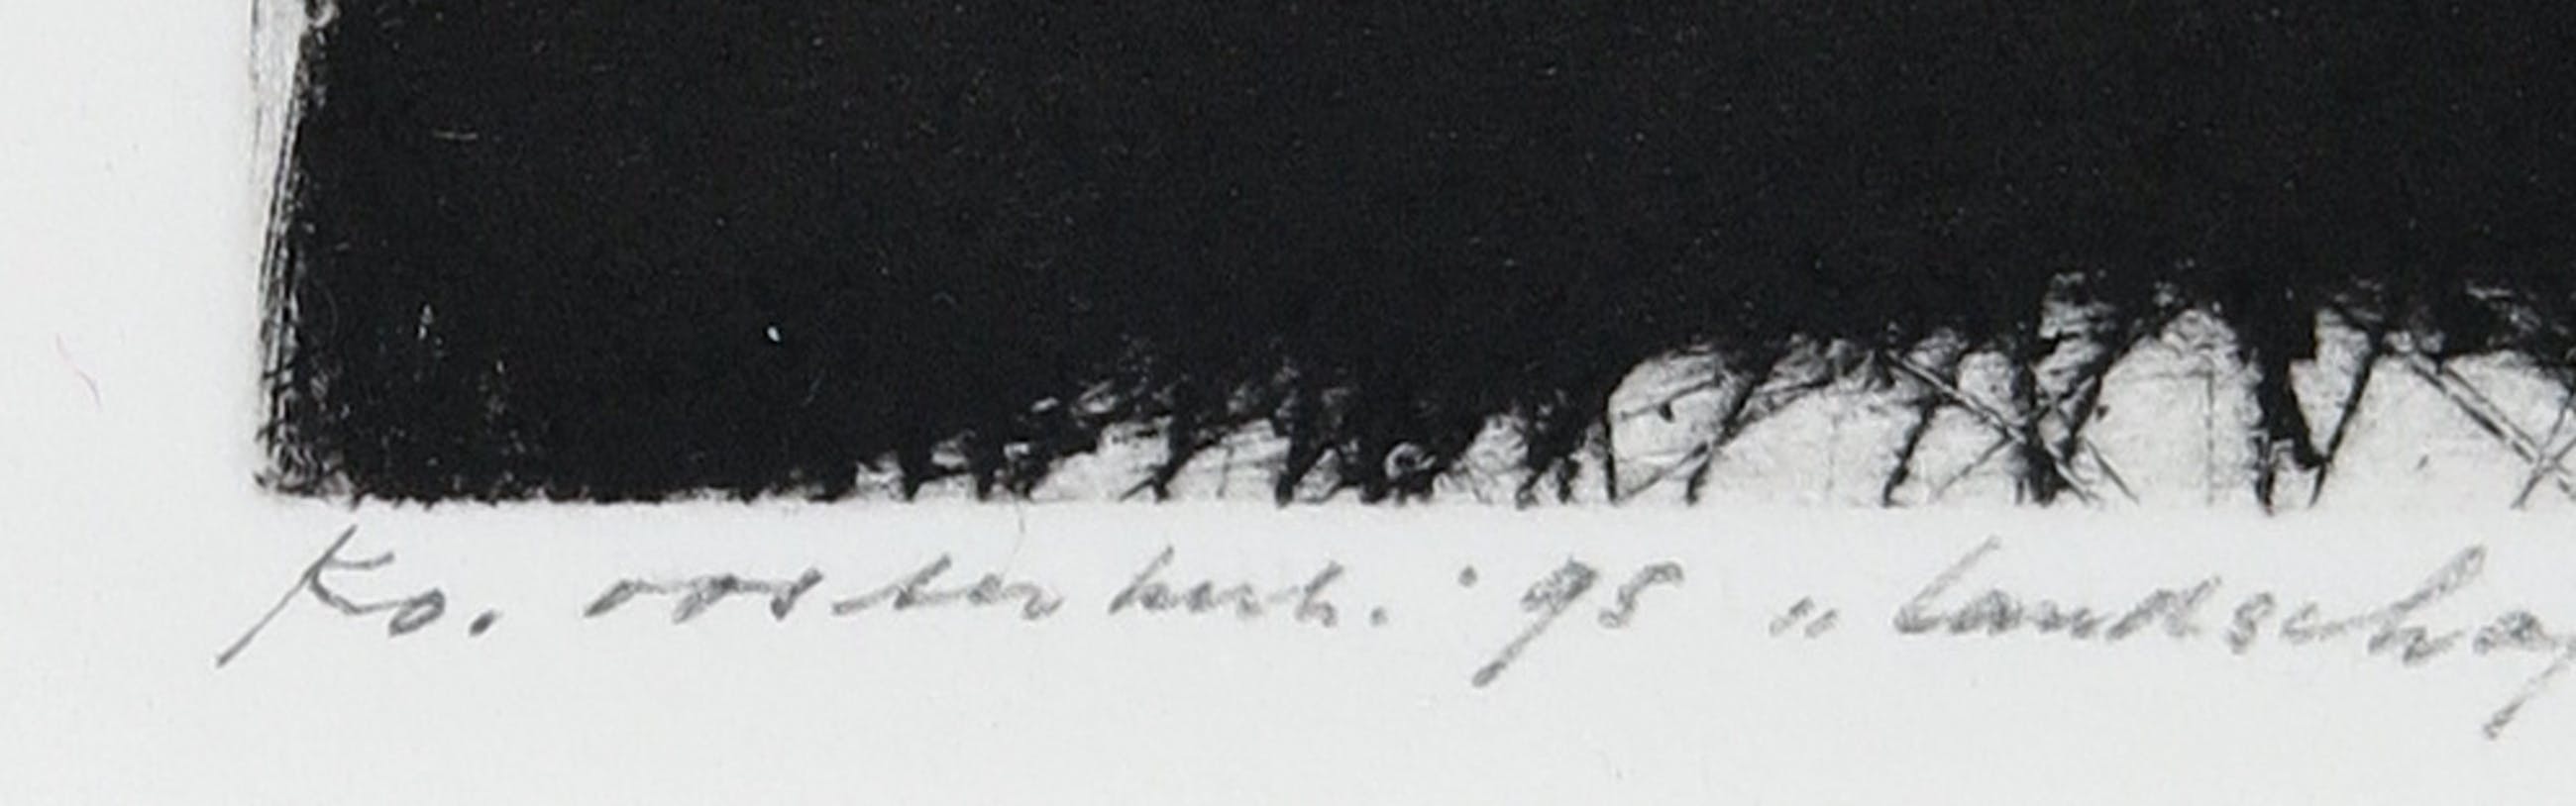 Ko. oosterkerk. '95 „landschap